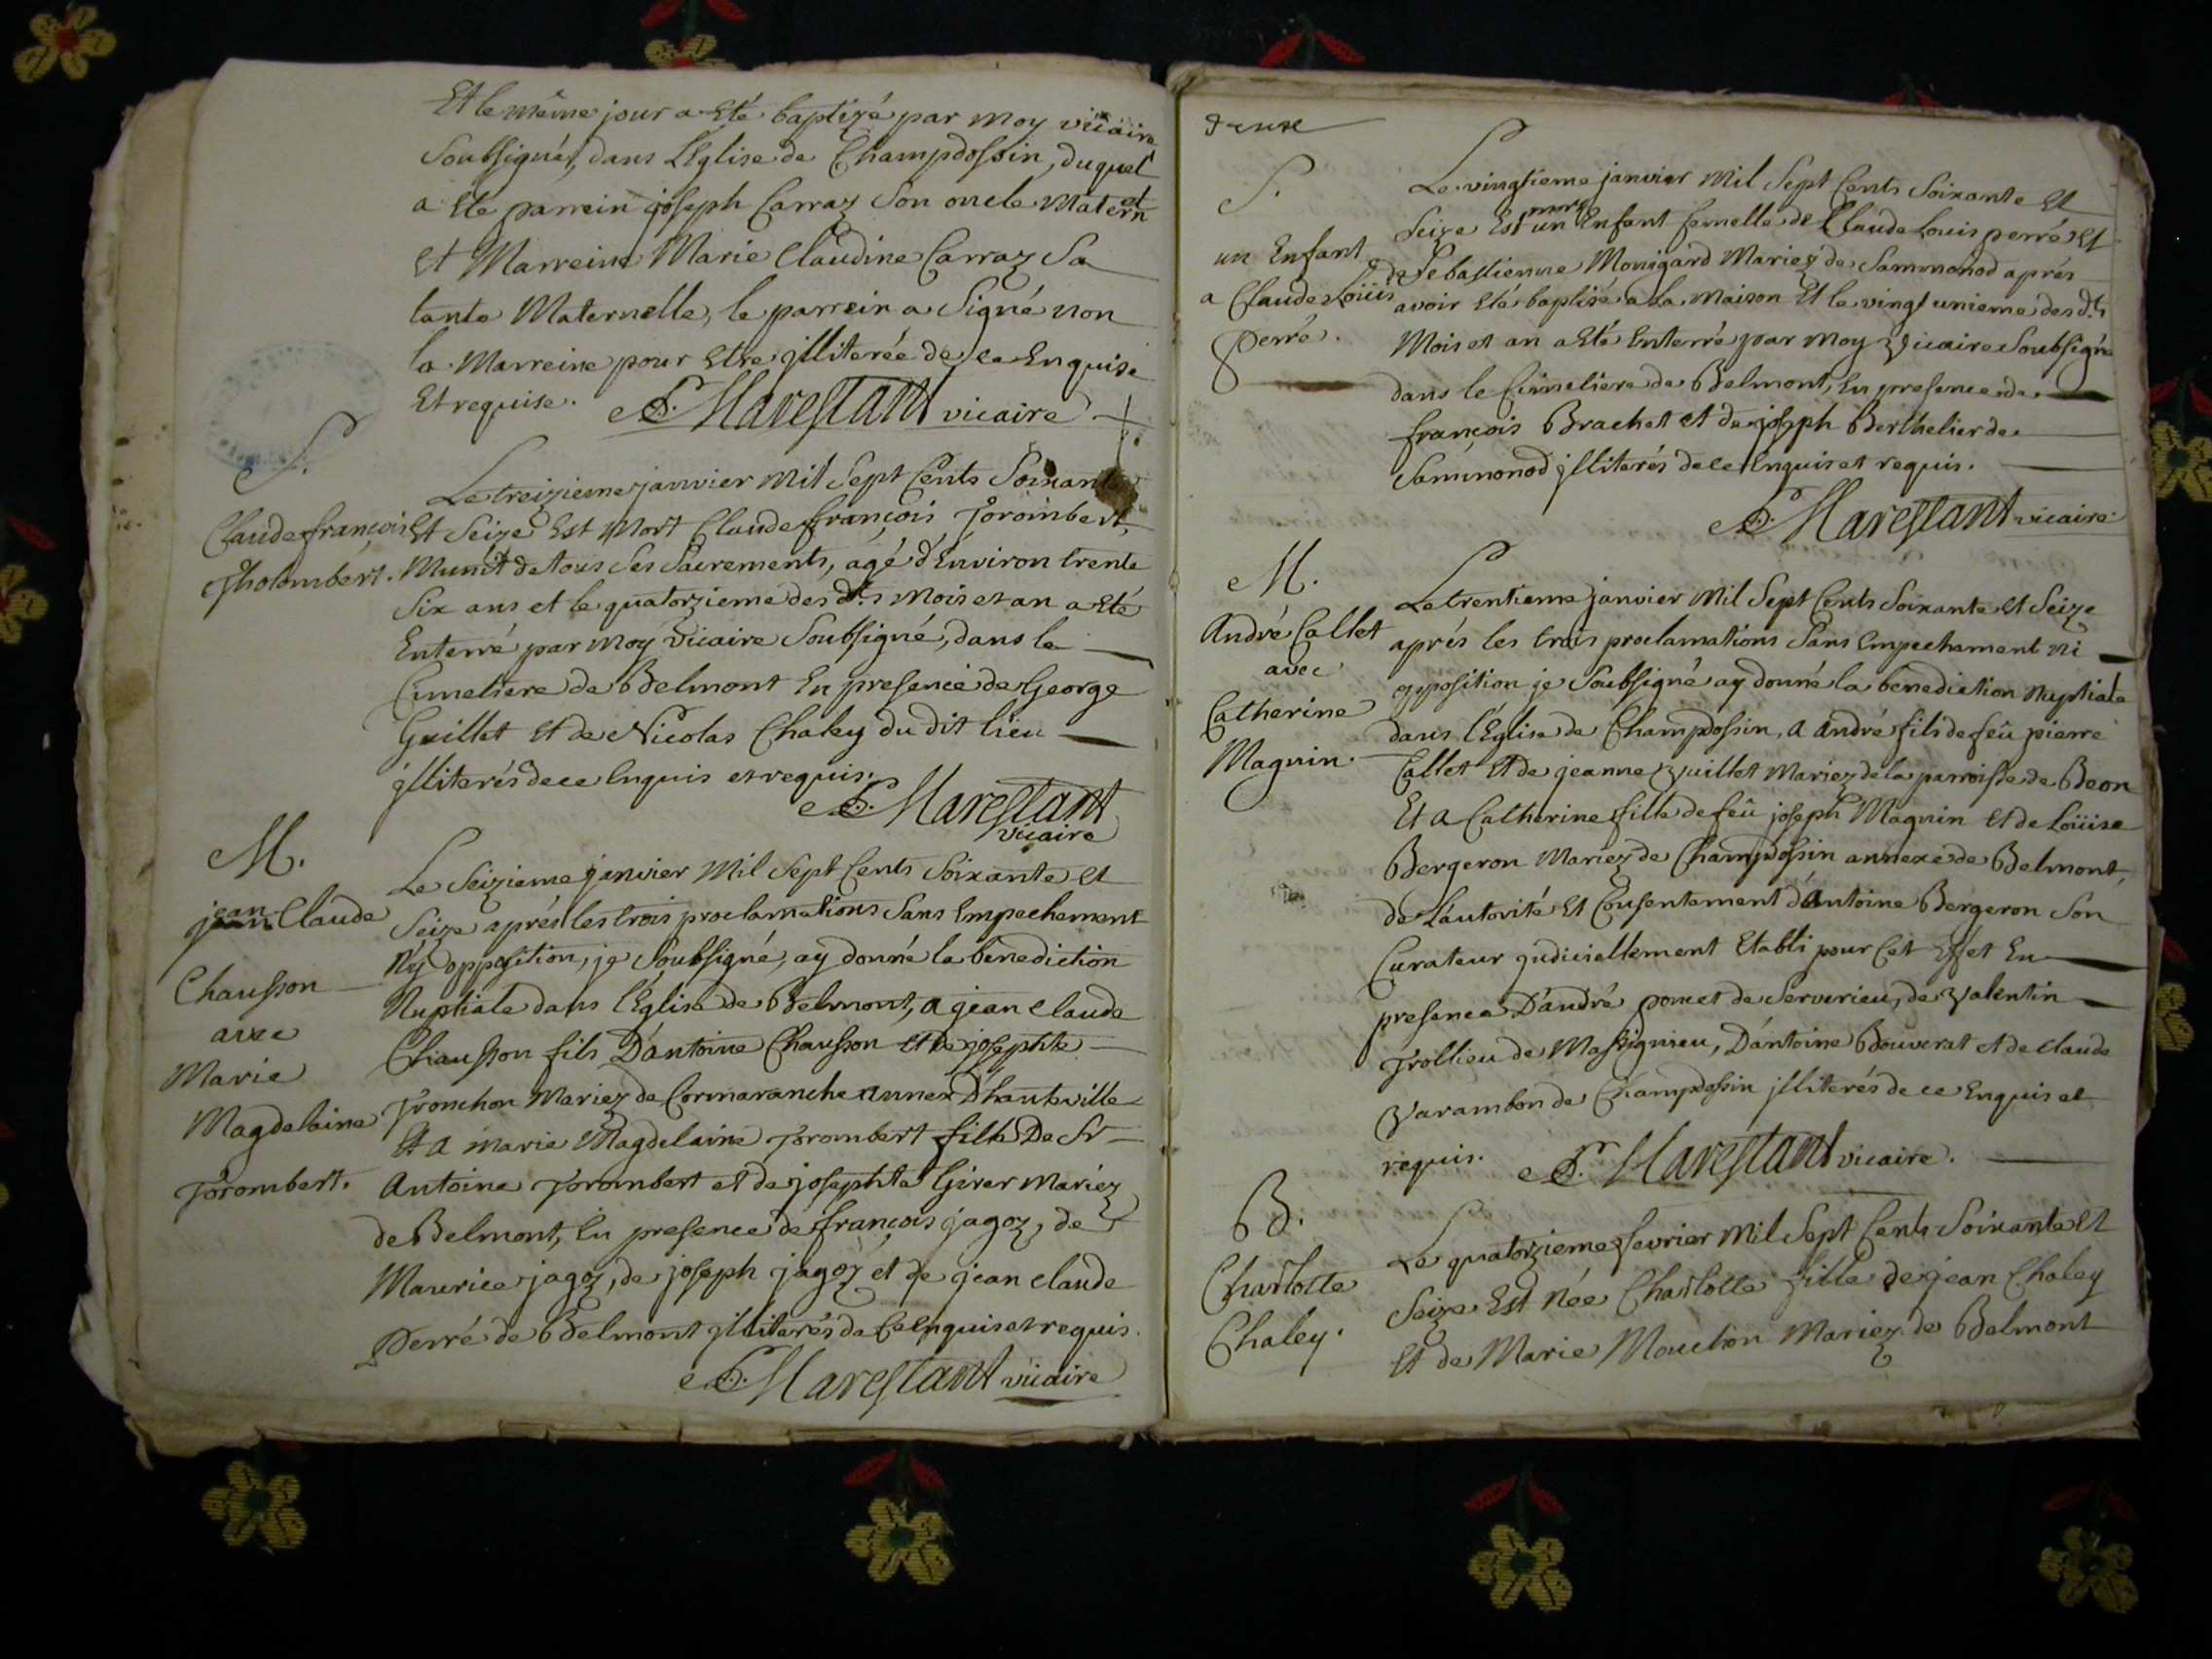 Et le même jour a été baptizé par moy vicaire
Soubsigné, dans L'Eglise de Champdossin, duquel
a été parrein joseph Carraz Son oncle Maternel
et Marreine Marie Claudine Carraz Sa
tante Maternelle, le parrein a Signé non
la Marreine pour Etre jlliterée de ce Enquise
Et requise. Marestant vicaire
S.
Claude françois
Tholombert.
Le treizieme janvier Mil Sept Cents Soixante
Et Seize Est Mort Claude françois Torombert,
Munit de tous Ses Sacrements, agé d'Environ trente
Six ans et le quatorzieme des dts Mois et an a Eté
Enterré par moy vicaire Soubsigné, dans le
Cimetiere de Belmont En presence de George
Guillet Et de Nicolas Chaley du dit lieu
jlliterés de ce Enquis et requis.
Marestant
vicaire
M.
jean Claude
Chausson
avec
Marie
Magdelaine
Torombert.
Le Seizieme janvier Mil Sept Cents Soixante Et
Seize aprés les trois proclamations Sans Empechement
Ny opposition, je Soubsigné, ay donné la benediction
Nuptiale dans l'Eglise de Belmont, a jean Claude
Chausson fils D'antoine Chausson Et de josephte
Tronchon Mariez de Cormaranche annex D'hauteville
Et a Marie Magdelaine Torombert fille De Sr
Antoine Torombert et de josephte Girer Mariez
de Belmont, En presence de françois jagoz, de
Maurice jagoz, de joseph jagoz et de jean claude
Perré de Belmont jlliterés de Ce Enquis et requis.
Marestant vicaire
deuxe
S.
un Enfant
a Claude Loüis
Perré.
Le vingtieme janvier Mil Sept Cents Soixante Et
Seize Est mort un Enfant femelle de Claude Louis perré Et
de Sebastienne Monigard Mariez de Sammonod aprés
avoir Eté baptisé a la Maison Et le vingt unieme des dts
Mois et an a Eté Enterré par moy Vicaire Soubsigné
dans le Cimetiere de Belmont, En presence de
françois Brachet et de joseph Berthelier de
Sammonod jlliterés de ce Enquis et requis.
Marestant vicaire
M.
André Callet
avec
Catherine
Magnin.
Le trentieme janvier Mil Sept Cents Soixante Et Seize
aprés les trois proclamations Sans Empechement ni
opposition je Soubsigné ay donné la benediction Nuptiale
dans l'Eglise de Champdossin, a André fils de feû pierre
Callet Et de jeanne Vuillet Mariez de la parroisse de Beon
Et a Catherine fille de feû joseph Magnin et de Loüise
Bergeron Mariez de Champdossin annexe de Belmont,
de Lautorité Et Consentement d'Antoine Bergeron Son
Curateur judiciellement Etabli pour Cet Effet En
presence D'andré poncet de Serverieu, de Valentin
Trollieu de Massignieu, D'antoine Bouverat et de claude
Varambon de Champdossin jlliterés de ce Enquis et
requis. Marestant vicaire.
B.
Charlotte
Chaley.
Le quatorzieme fevrier Mil Sept Cents Soixante Et
Seize Est Née Charlotte fille de jean Chaley
Et de Marie Mouchon Mariez de Belmont